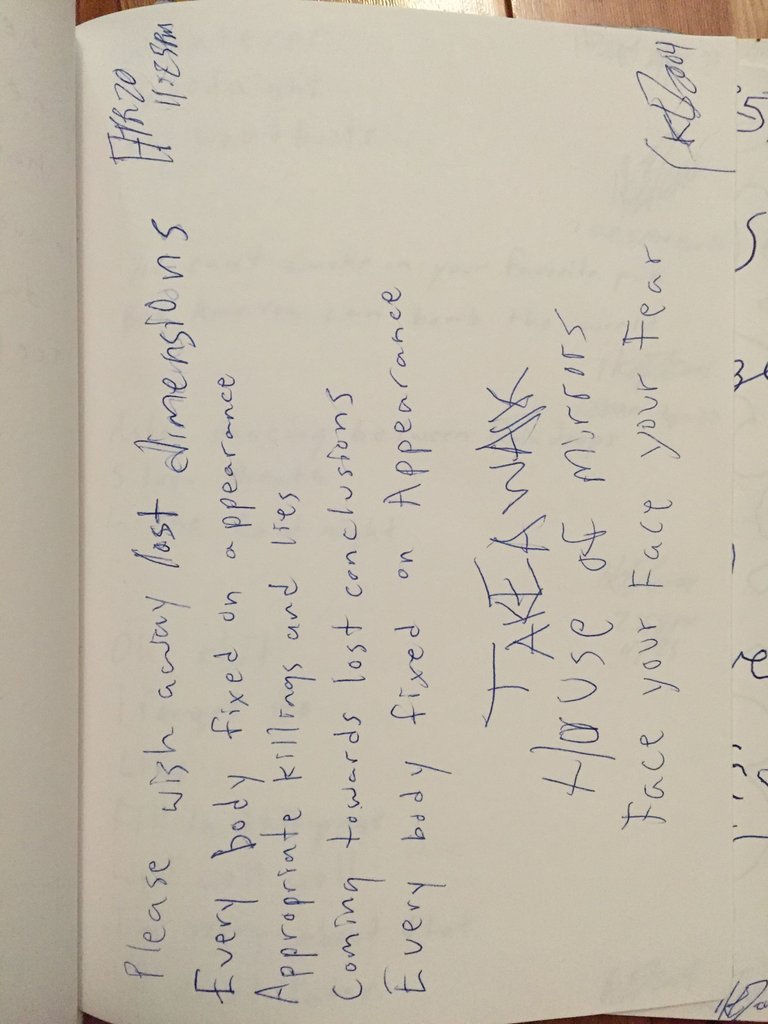 Please wish away lost dimensions
11:23PM
Every body fixed on appearance
Appropriate killings and lies
Coming towards lost conclusions
Every body fixed on Appearance
TAKE A WALK
House of mirrors
Face your Face your Fear